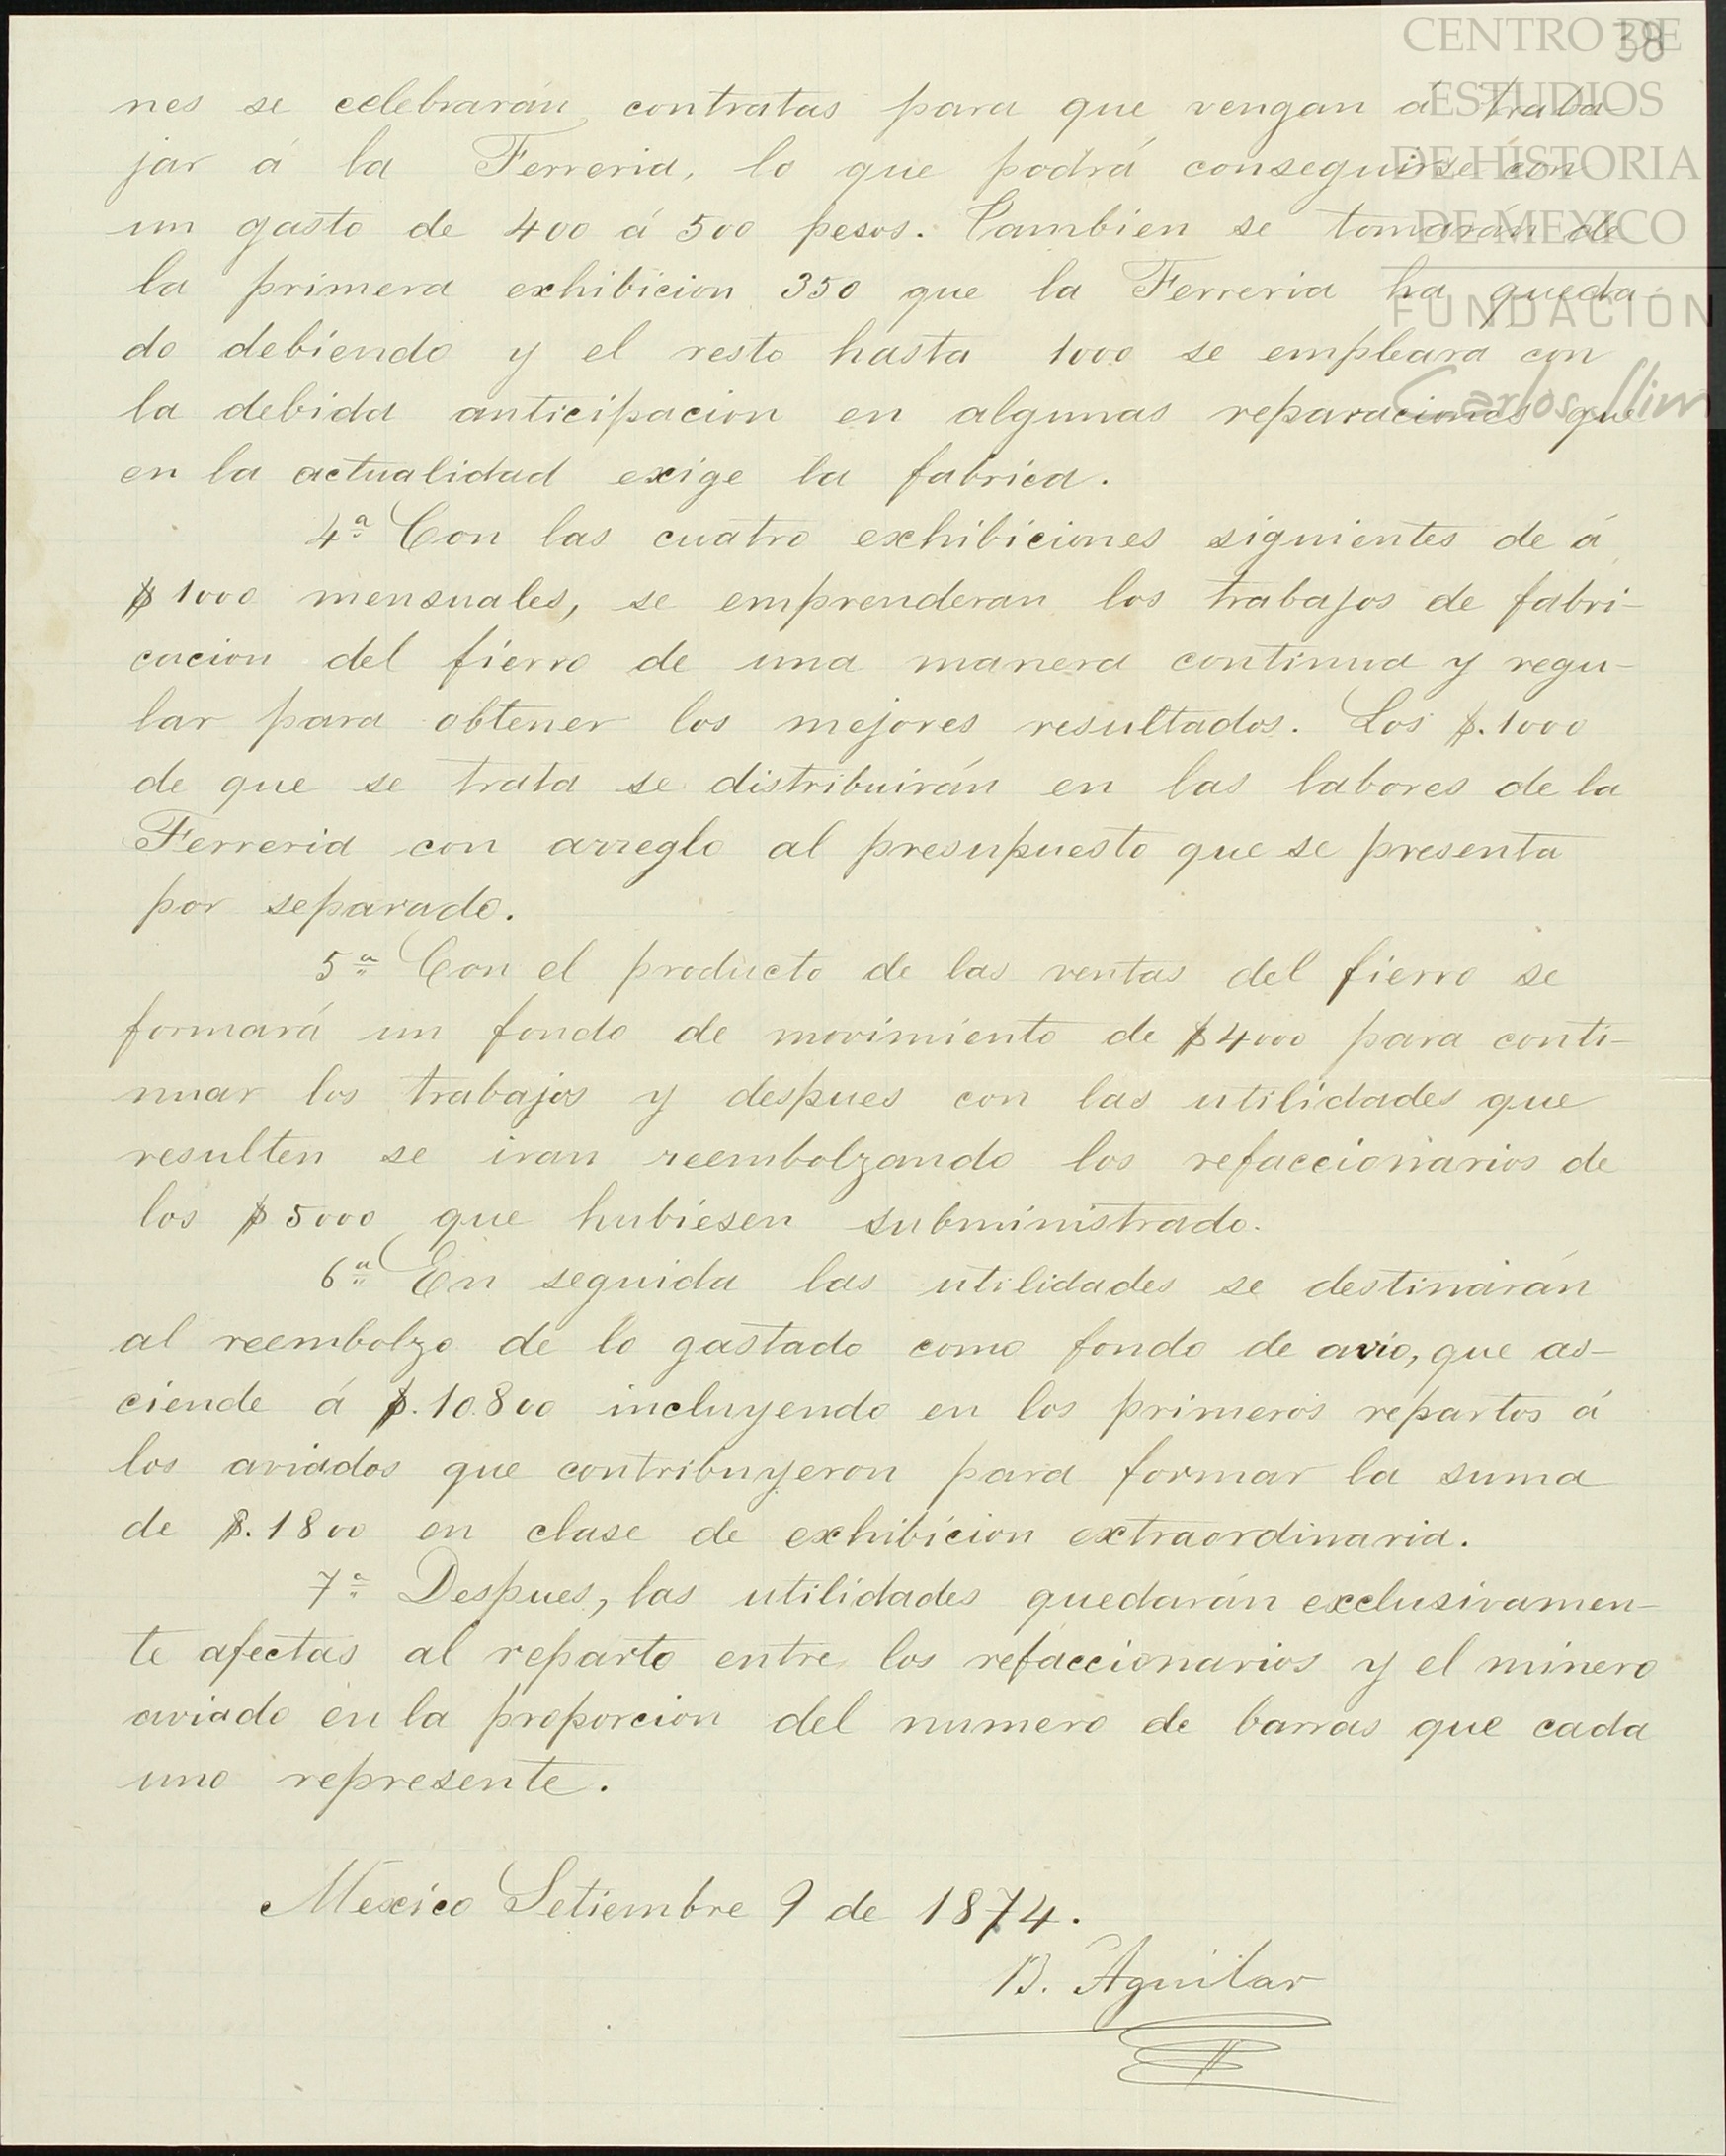 38
CENTRO DE
ESTUDIOS
DE HISTORIA
DE MEXICO
FUNDACIÓN
Carlos Slim
nes se celebrarán contratas para que vengan á traba-
jar á la Ferreria, lo que podrá conseguirse con
un gasto de 400 á 500 pesos. Tambien se tomarán de
la primera exhibicion 350 que la Ferreria ha queda-
do debiendo y el resto hasta 1000 se empleara con
la debida anticipacion en algunas reparaciones que
en la actualidad exige la fabrica.
4ª Con las cuatro exhibiciones siguientes de á
$1000 mensuales, se emprenderan los trabajos de fabri-
cacion del fierro de una manera continua y regu-
lar para obtener los mejores resultados. Los $.1000
de que se trata se distribuirán en las labores de la
Ferreria con arreglo al presupuesto que se presenta
por separado.
5ª Con el producto de las ventas del fierro se
formará un fondo de movimiento de $4000 para conti-
nuar los trabajos y despues con las utilidades que
resulten se iran reembolzando los refaccionarios de
los $5000 que hubiesen subministrado.
6ª En seguida las utilidades se destinarán
al reembolzo de lo gastado como fondo de avio, que as-
ciende á $.10.800 incluyendo en los primeros repartos á
los aviados que contribuyeron para formar la suma
de $.1800 en clase de exhibicion extraordinaria.
7ª Despues, las utilidades quedarán exclusivamen-
te afectas al reparto entre los refaccionarios y el minero
aviado en la proporcion del numero de barras que cada
uno represente.
Mexico Setiembre 9 de 1874.
B. Aguilar